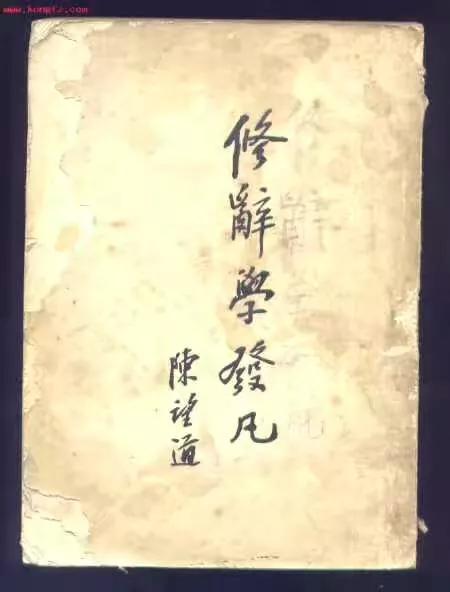 www.kongfz.com
修辭學發凡
陳望道